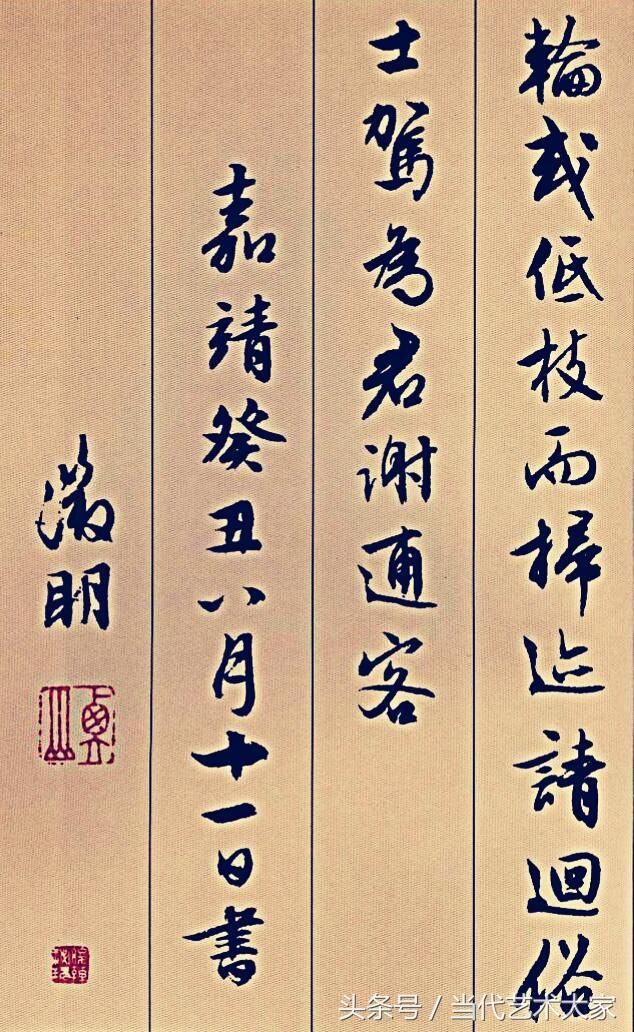 輪或低枝而掃迹請迴俗
士駕為君謝逋客
嘉靖癸丑八月十一日書
徵明
头条号 / 当代艺术大家